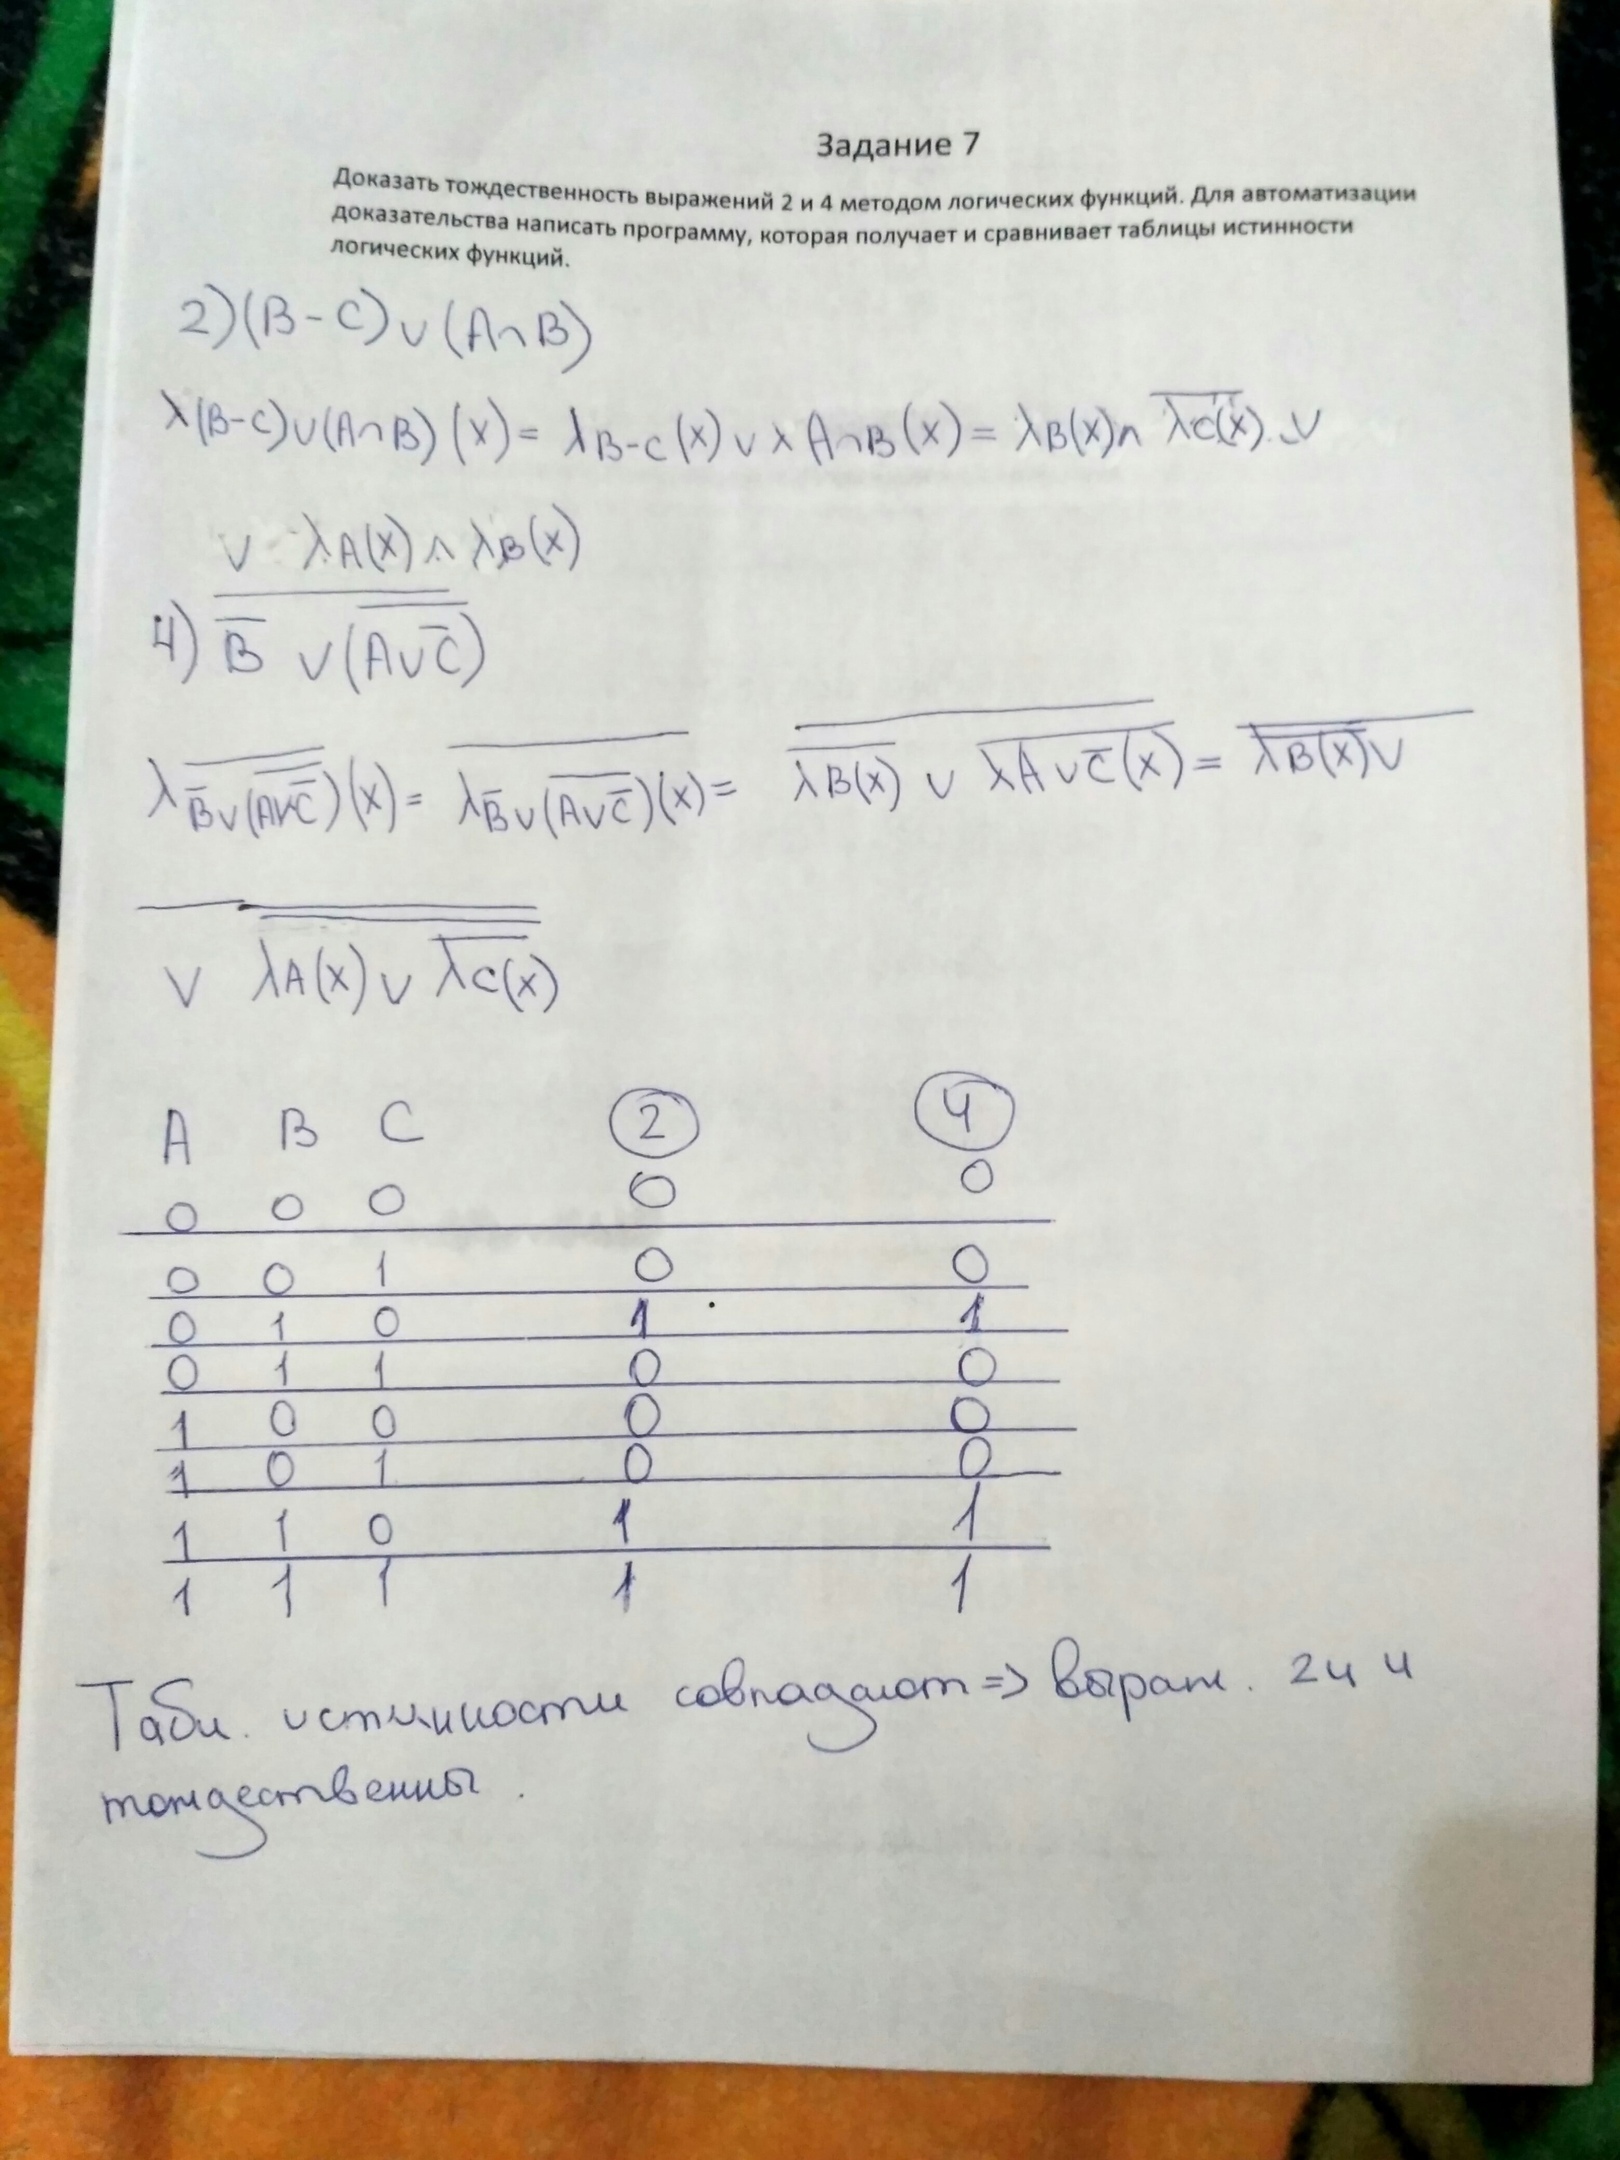 Задание 7
Доказать тождественность выражений 2 и 4 методом логических функций. Для автоматизации
доказательства написать программу, которая получает и сравнивает таблицы истинности
логических функций.
2) (B - C) ∪ (A ∩ B)
λ(B-C)∪(A∩B) (x) = λB-C (x) ∨ λA∩B (x) = λB(x) ∧ \overline{λC(x)} ∨
∨ λA(x) ∧ λB(x)
4) \overline{\overline{B} ∪ (\overline{A ∪ \overline{C}})}
λ\overline{\overline{B}∪(\overline{A∪\overline{C}})}(x) = \overline{λ\overline{B}∪(\overline{A∪\overline{C}})(x)} = \overline{\overline{λB(x)} ∨ \overline{λA∪\overline{C}(x)}} = \overline{\overline{λB(x)} ∨
∨ \overline{λA(x) ∨ \overline{λC(x)}}}
A B C 2 4
0 0 0 0 0
0 0 1 0 0
0 1 0 1 1
0 1 1 0 0
1 0 0 0 0
1 0 1 0 0
1 1 0 1 1
1 1 1 1 1
Табл. истинности совпадают => выраж. 2 и 4
тождественны.